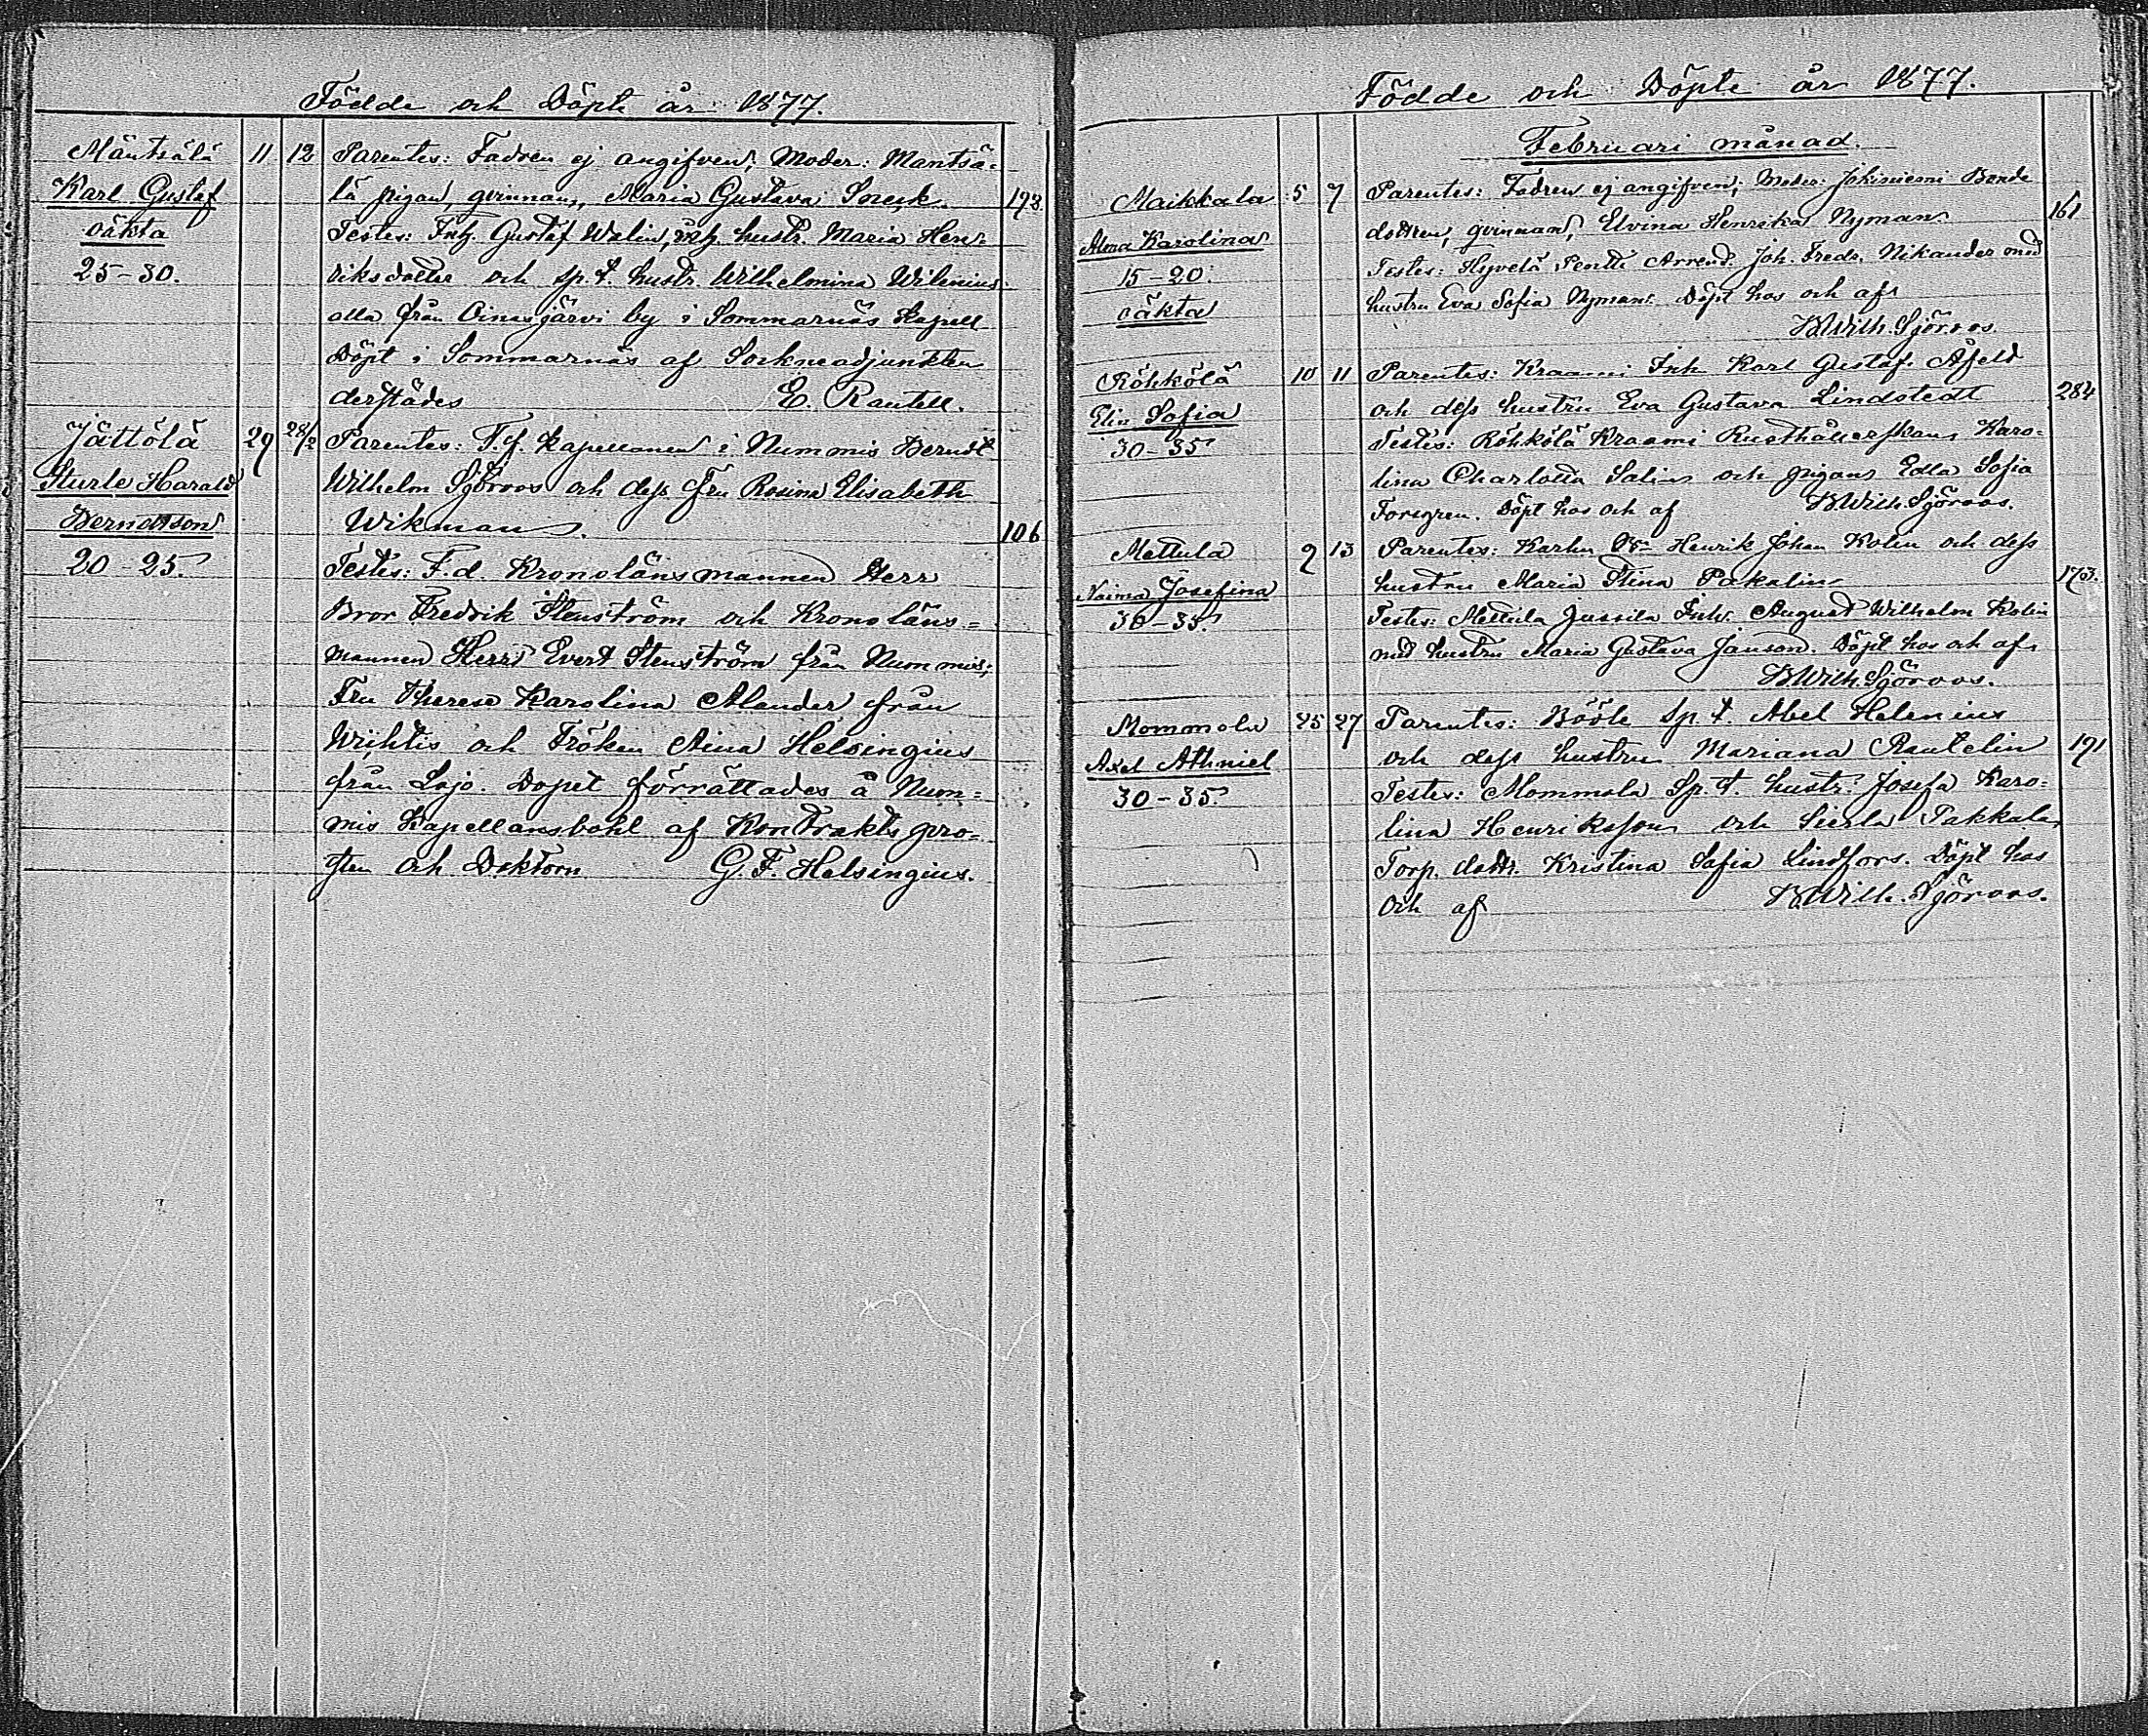 Födde och Döpte år 1877.
Mäntsälä 11 12 Parentes: Fadren ej angifven; Moder: Mäntsä-
Karl Gustaf lä pigan, qvinnan, Maria Gustava Sneck. 193.
oäkta Testes: Inh. Gustaf Walin, Inh. hustr. Maria Hen-
25-30. riksdotter och Sp. t. hustr. Wilhelmina Wilenius
alla från Oinasjärvi by i Sommarnäs kapell
Döpt i Sommarnäs af Sockneadjunkten
derstädes E. Rantell.
Jättölä 29 28/2 Parentes: T.f. kapellanen i Nummis Berndt
Sturle Harald Wilhelm Sjöroos och dess Fru Rosina Elisabeth
Berndtson Wikman. 106
20-25. Testes: F.d. Kronolänsmannen Herr
Bror Fredrik Stenström och Kronoläns-
mannen Herr Evert Stenström från Nummis;
Fru Therese Karolina Alander från
Wichtis och Fröken Aina Helsingius
från Lojo. Dopet förrättades å Num-
mis Kapellansbohl af Kontraktspro-
sten och Doktorn G. F. Helsingius.
Födde och Döpte år 1877.
Februari månad.
Maikkala 5 7 Parentes: Fadren ej angifven; Moder: Johisniemi Bonde
Alma Karolina dottren, qvinnan, Elvina Henrika Nyman 161
15-20. Testes: Hyvelä Pentti Arrend. Joh. Fredr. Nikander med
oäkta hustru Eva Sofia Nyman. Döpt hos och af
B Wilh. Sjöroos
Röhkölä 10 11 Parentes: Kraami Inh. Karl Gustaf Åfeld
Elin Sofia och dess hustru Eva Gustava Lindstedt 284
30-35 Testes: Röhkölä Kraami Rusthållerskan Karo-
lina Charlotta Salin och pigan Edla Sofia
Forsgren. Döpt hos och af B Wilh. Sjöroos.
Mettula 2 13 Parentes: Karhu Henrik Johan Kolin och dess
Naima Josefina hustru Maria Stina Pakalin 173.
30-35. Testes: Mettula Jussila Inh. August Wilhelm Kolin
med hustru Maria Gustava Janson. Döpt hos och af
B Wilh. Sjöroos.
Mommola 25 27 Parentes: Bööle Sp. t. Abel Helenius
Axel Athniel och dess hustru Mariana Rautelin 191
30-35. Testes: Mommola Sp. t. hustr. Josefa Karo-
lina Henriksson och Sierla Pakkala
Torp. dottr. Kristina Sofia Lindfors. Döpt hos
och af B Wilh. Sjöroos.